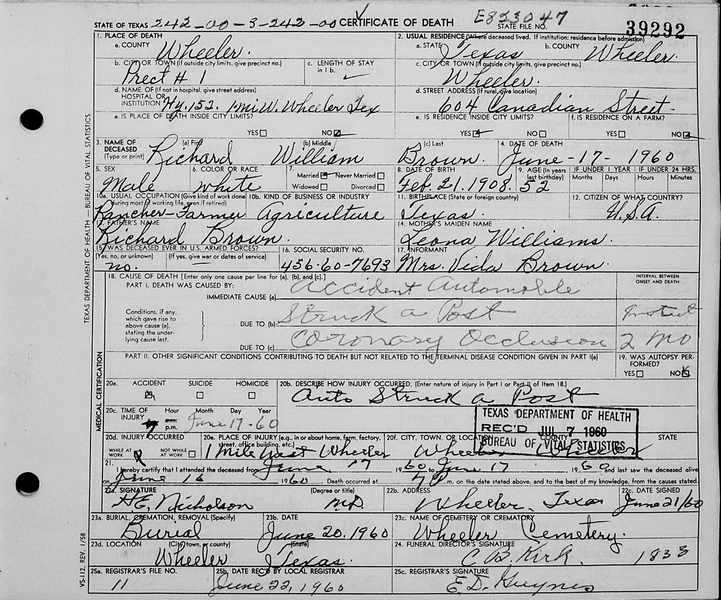 STATE OF TEXAS 242-00-3-242-00 CERTIFICATE OF DEATH E823047 STATE FILE NO. 39292
1. PLACE OF DEATH
a. COUNTY Wheeler
2. USUAL RESIDENCE (Where deceased lived. If institution: residence before admission)
a. STATE Texas b. COUNTY Wheeler
b. CITY OR TOWN (If outside city limits, give precinct no.) Prect # 1
c. LENGTH OF STAY in 1 b.
c. CITY OR TOWN (If outside city limits, give precinct no.) Wheeler
d. NAME OF (If not in hospital, give street address) HOSPITAL OR INSTITUTION Hy. 152. 1 mi W. Wheeler Tex
d. STREET ADDRESS (If rural, give location) 604 Canadian Street
e. IS PLACE OF DEATH INSIDE CITY LIMITS? YES NO
e. IS RESIDENCE INSIDE CITY LIMITS? YES NO
f. IS RESIDENCE ON A FARM? YES NO
3. NAME OF DECEASED (Type or print) (a) First Richard (b) Middle William (c) Last Brown
4. DATE OF DEATH June-17-1960
5. SEX Male
6. COLOR OR RACE White
7. Married Never Married Widowed Divorced
8. DATE OF BIRTH Feb. 21. 1908.
9. AGE (In years last birthday) 52 IF UNDER 1 YEAR Months Days IF UNDER 24 HRS. Hours Min.
10a. USUAL OCCUPATION (Give kind of work done during most of working life, even if retired) Rancher-Farmer
10b. KIND OF BUSINESS OR INDUSTRY Agriculture
11. BIRTHPLACE (State or foreign country) Texas
12. CITIZEN OF WHAT COUNTRY? U.S.A.
13. FATHER'S NAME Richard Brown.
14. MOTHER'S MAIDEN NAME Leona Williams
15. WAS DECEASED EVER IN U.S. ARMED FORCES? (Yes, no, or unknown) (If yes, give war or dates of service) no.
16. SOCIAL SECURITY NO. 456-60-7693
17. INFORMANT Mrs. Vida Brown.
18. CAUSE OF DEATH [Enter only one cause per line for (a), (b), and (c).]
INTERVAL BETWEEN ONSET AND DEATH
PART I. DEATH WAS CAUSED BY:
IMMEDIATE CAUSE (a) Accident Automobile
Conditions, if any, which gave rise to above cause (a), stating the underlying cause last.
DUE TO (b) Struck a Post
DUE TO (c) Coronary Occlusion 2 mo
PART II. OTHER SIGNIFICANT CONDITIONS CONTRIBUTING TO DEATH BUT NOT RELATED TO THE TERMINAL DISEASE CONDITION GIVEN IN PART I(a)
19. WAS AUTOPSY PERFORMED? YES NO
20a. ACCIDENT SUICIDE HOMICIDE
20b. DESCRIBE HOW INJURY OCCURRED. (Enter nature of injury in Part I or Part II of Item 18.)
Auto Struck a Post
20c. TIME OF INJURY Hour Month Day Year 7 p.m. June 17-60
TEXAS DEPARTMENT OF HEALTH
REC'D JUL 7 1960
BUREAU OF VITAL STATISTICS
20d. INJURY OCCURRED WHILE AT WORK NOT WHILE AT WORK
20e. PLACE OF INJURY (e.g., in or about home, farm, factory, street, office building, etc.) 1 Mile West Wheeler
20f. CITY, TOWN, OR LOCATION COUNTY STATE
Wheeler Wheeler
21. I hereby certify that I attended the deceased from June 17 1960 to June 17 1960 and last saw the deceased alive
on June 16 1960 Death occurred at 7 P m. on the date stated above, and to the best of my knowledge, from the causes stated.
22a. SIGNATURE H.E. Nicholson (Degree or title) MD
22b. ADDRESS Wheeler, Texas
22c. DATE SIGNED June 21/60
23a. BURIAL, CREMATION, REMOVAL (Specify) Burial
23b. DATE June 20, 1960
23c. NAME OF CEMETERY OR CREMATORY Wheeler Cemetery.
23d. LOCATION (City, town, or county) (State) Wheeler Texas
24. FUNERAL DIRECTOR'S SIGNATURE C. B. Kirk. 1833
25a. REGISTRAR'S FILE NO. 11
25b. DATE REC'D BY LOCAL REGISTRAR June 22, 1960
25c. REGISTRAR'S SIGNATURE
TEXAS DEPARTMENT OF HEALTH BUREAU OF VITAL STATISTICS
MEDICAL CERTIFICATION
VS-112 REV. 1/58